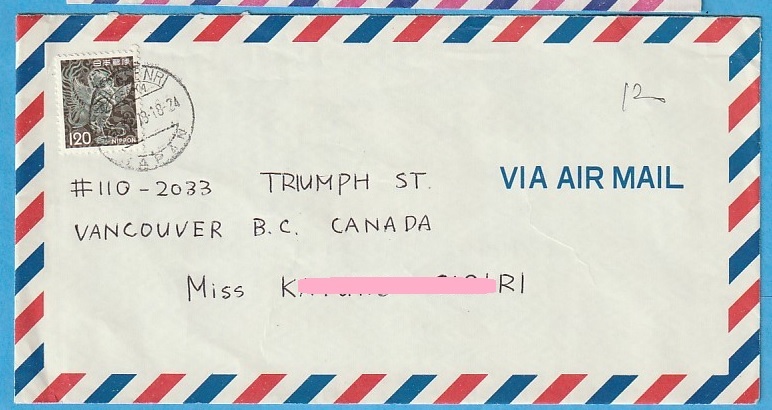 日本郵便
120 NIPPON
JAPAN
12
VIA AIR MAIL
#110-2033 TRIUMPH ST.
VANCOUVER B.C. CANADA
Miss